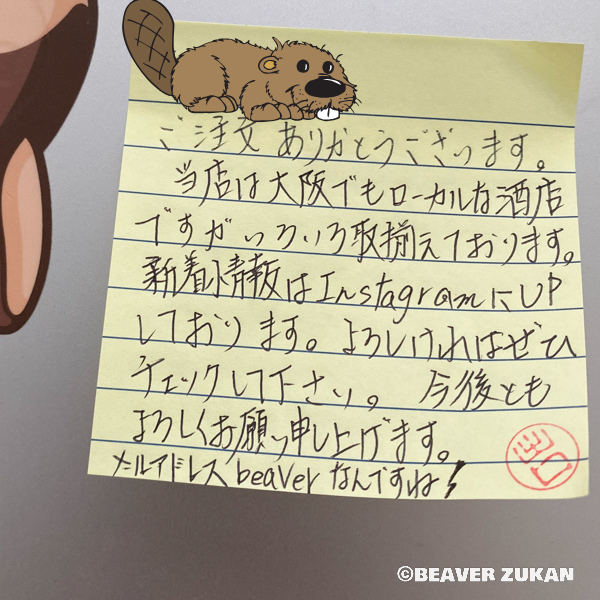 ご注文ありがとうございます。
当店は大阪でもローカルな酒店
ですがいろいろ取揃えております。
新着情報はInstagramにUP
しております。よろしければぜひ
チェックして下さい。今後とも
よろしくお願い申し上げます。
メールアドレスbeaverなんですね!
©BEAVER ZUKAN